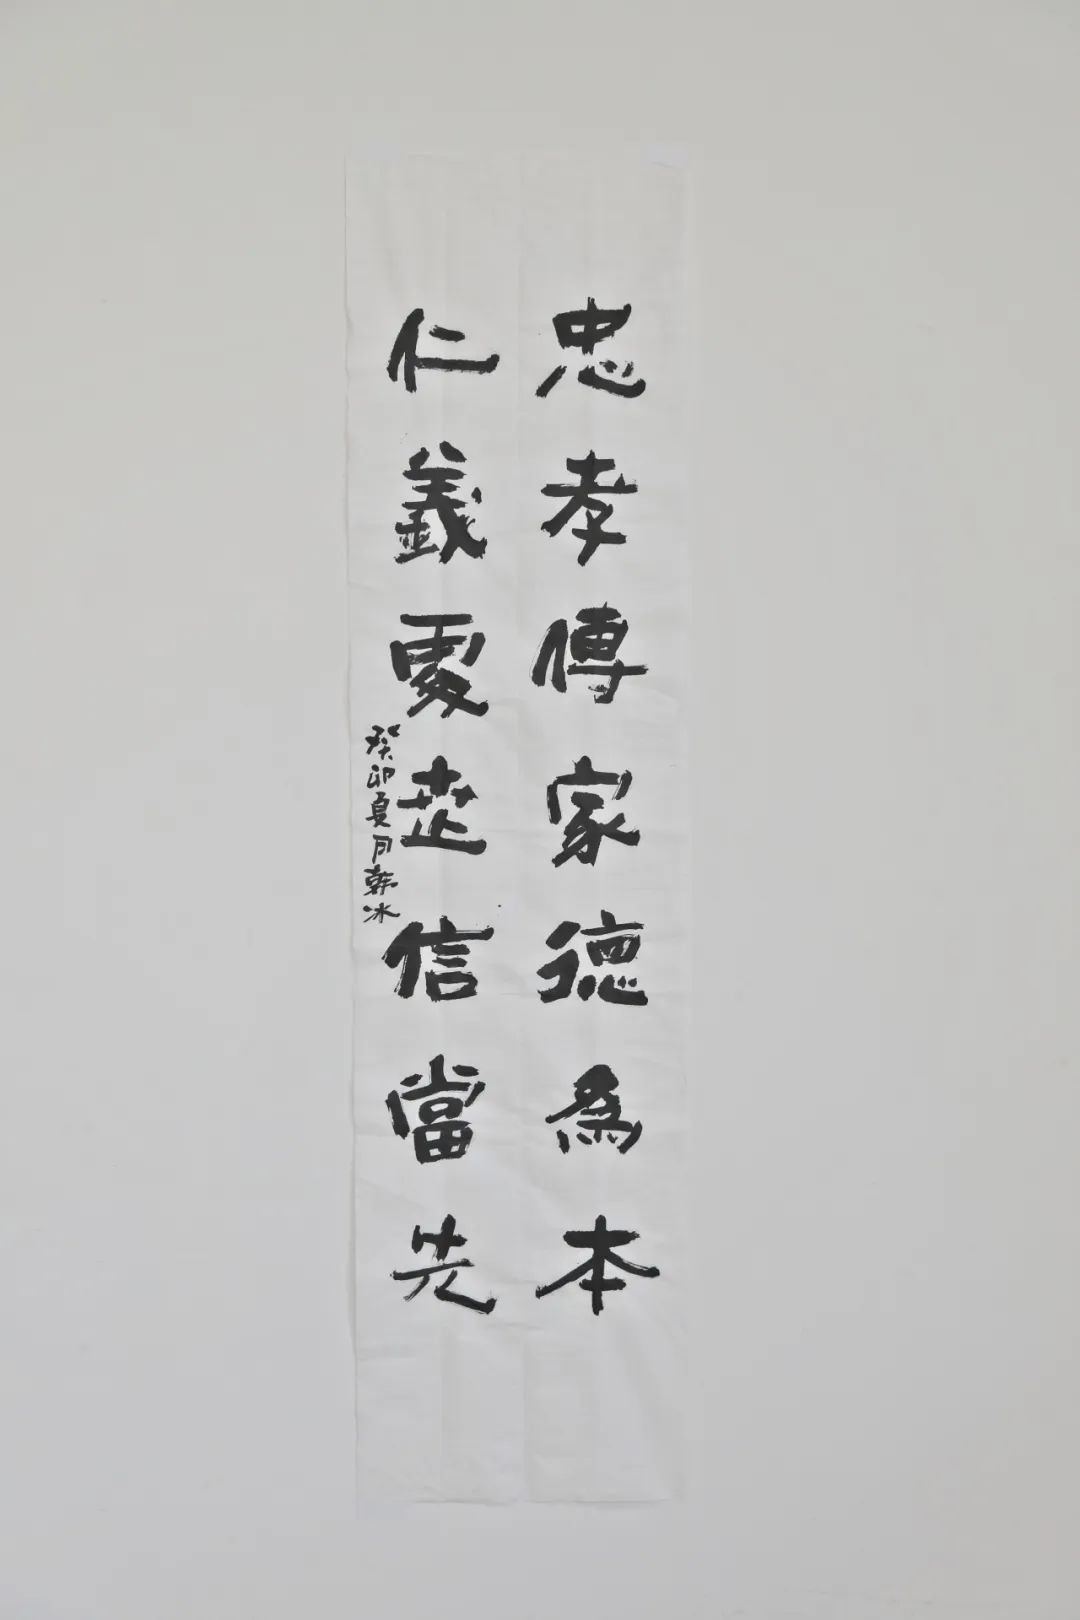 忠孝傳家德為本
仁義處走信當先
癸卯夏月韩冰